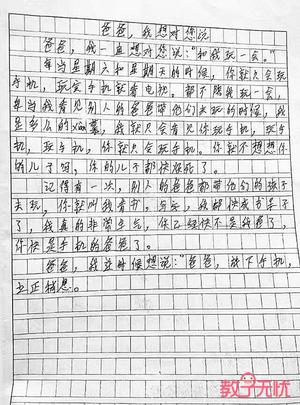 爸爸，我想对您说
爸爸，我一直想对您说："和我玩一会。"
每当星期六和星期天的时候，你就只会玩
手机，玩完手机就看电视。都不陪我玩一会，
每当我看见别人的爸爸带他们去玩的时候，我
是多么的xian慕，我就只会看见你玩手机，玩手
机，玩手机，你就只会玩手机。你就不想想你
的儿子吗，你的儿子都快
记得有一次，别人的爸爸都带他们的孩子
去玩，你就叫我看书，写字，我都快成书呆子
了，我真的非常生气，你已经快不是我爸了，
你快是手机的爸爸了。
爸爸，我这时候想说："爸爸！放下手机，
去正
教子无忧